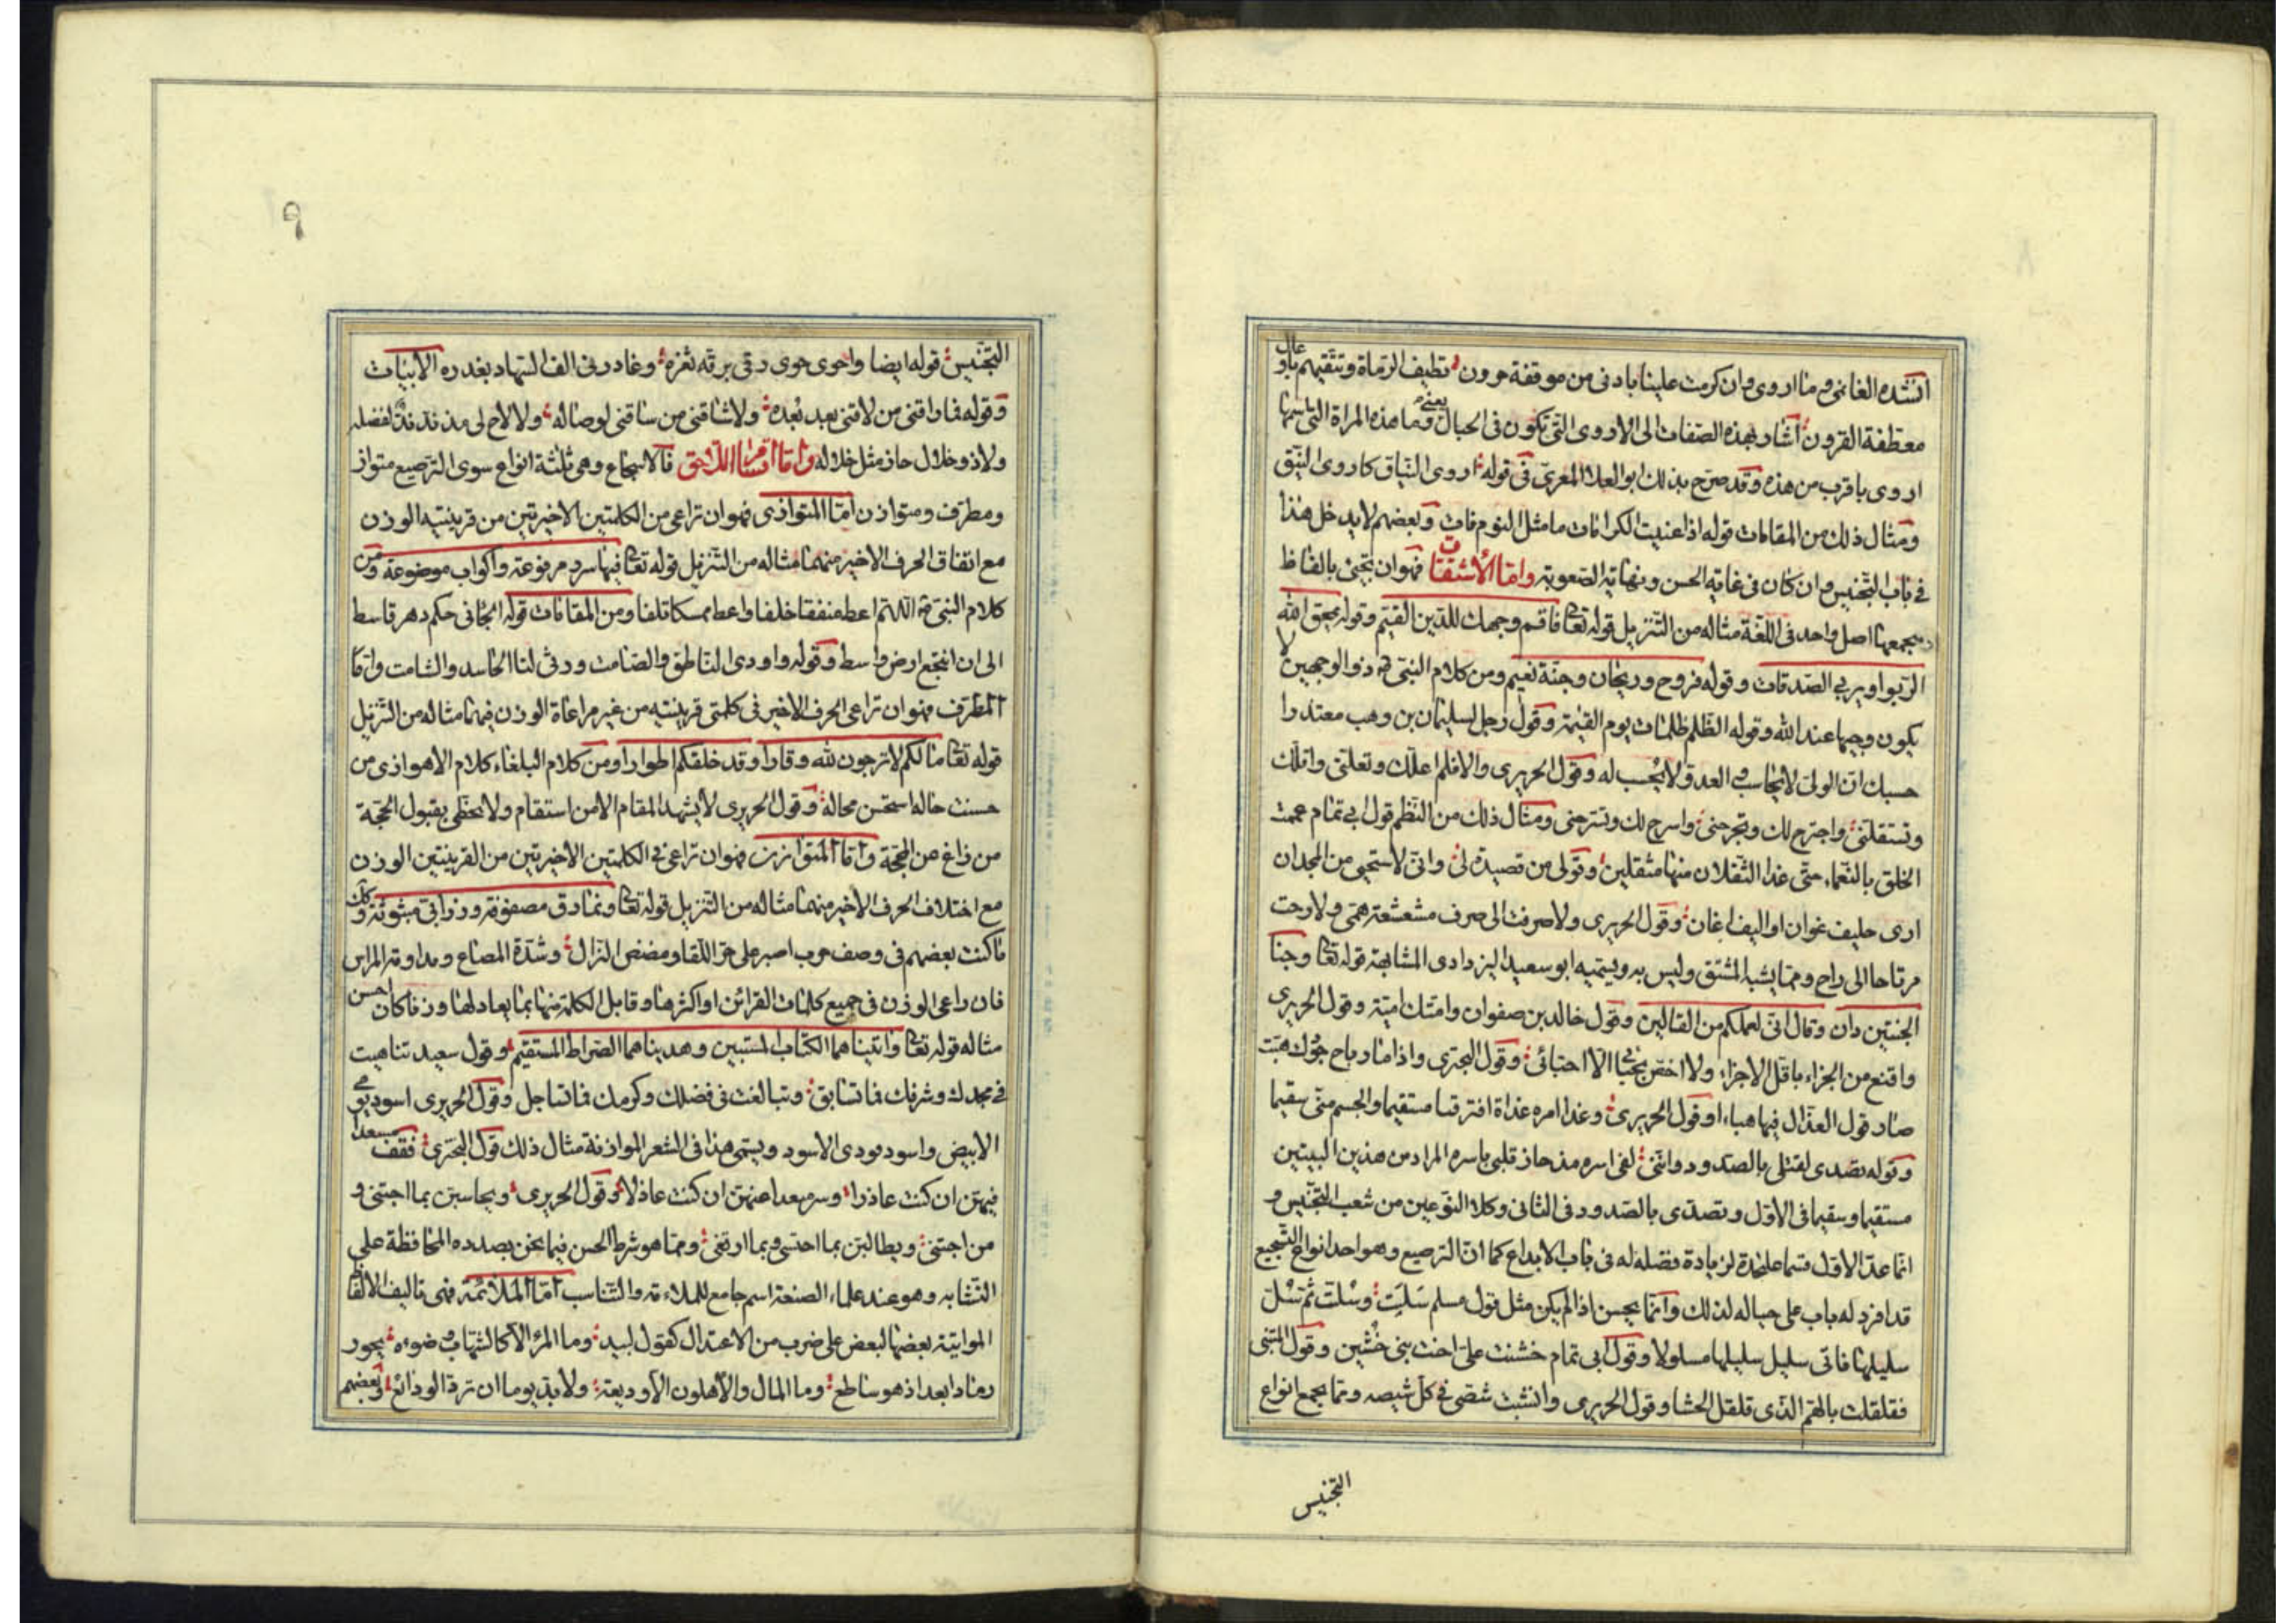 انشده الغانمى وما اروى وان كرمت علينا بادنى من موقفة حرون تطيف الرماة وتتقيهم باوعال
معطفة القرون اشار بهذه الصفات الى الاروى التى تكون فى الجبال يعنى وما هذه المراة التى اسمها
اروى باقرب من هذه وقد صرح بذلك ابو العلا المعرى فى قوله اروى النياق كاروى النيق
ومثال ذلك من المقامات قوله اذا عنيت الكرامات ما مثل النوم فات وبعضهم لا يدخل هذا
فى باب التجنيس وان كان فى غاية الحسن ونهاية الصعوبة واما الاشتقاق فهو ان تجئ بالفاظ
يجمعها اصل واحد فى اللغة مثاله من التنزيل قوله تعا فاقم وجهك للدين القيم وقوله يمحق الله
الربوا ويربى الصدقات وقوله فروح وريحان وجنة نعيم ومن كلام النبى ذو الوجهين لا
يكون وجيها عند الله وقوله الظلم ظلمات يوم القيمة وقول رجل لسليمان بن وهب معتذرا
حسبك ان الولى لا يحاسب والعدو لا يحسب له وقول الحريرى والا فلم اعلك وتعلنى واقلك
وتستقلنى واجترح لك وتجرحنى واسرح لك وتسرحنى ومثال ذلك من النظم قول ابى تمام عممت
الخلق بالنعماء حتى غدا الثقلان منها مثقلين وقولى من قصيدة لى وانى لاستحيى من المجد ان
ارى حليف غوان او اليف اغان وقول الحريرى ولا صرفت الى صرف مشعشعة همى ولا رحت
مرتاحا الى راح ومما يشبه المشتق وليس به ويسميه ابو سعيد اليزدادى المشابهة قوله تعا وجنا
الجنتين دان وقال انى لعملكم من القالين وقول خالد بن صفوان وامتك امية وقول الحريرى
واقنع من الجزاء باقل الاجزاء ولا اخفر بحبا الا احتبائى وقول البحترى واذا ما رباح جودك هبت
صار قول العذال فيها هباء وقول الحريرى وغدا امره غداة افترقنا مستقيما والجسم منى سقيما
وقوله تصدى لقتلى بالصدود واننى لفى اسره مذ حاز قلبى باسره المراد من هذين البيتين
مستقيما وسقيما فى الاول وتصدى بالصدود فى الثانى وكلا النوعين من شعب التجنيس و
انما عد الاول قسما على حدة لزيادة فضله له فى باب الابداع كما ان الترصيع وهو احد انواع التسجيع
قد افرد له باب على حياله لذلك وانما يحسن اذا لم يكن مثل قول مسلم سَلت وسُلت ثم سُل
سليلها فاتى سليل سليلها مسلولا وقول ابى تمام خشنت على اخت بنى خشين وقول المتنبى
فقلقلت بالهم الذى قلقل الحشا وقول الحريرى وانشبت شصى فى كل شيصه ومما يجمع انواع
التجنيس
٩
التجنيس قوله ايضا واحوى حوى رقى برقة ثغره وغادرنى الف السهاد بغدره الابيات
وقوله فما راقنى من لاقنى بعد بعده ولا شاقنى من ساقنى لوصاله ولا لاح لى مذ ند ند لفضله
ولا ذو خلال حاز مثل خلاله واما اقسام اللاحق فالاسجاع وهى ثلثة انواع سوى الترصيع متواز
ومطرف ومتوازن اما المتوازى فهو ان تراعى من الكلمتين الاخيرتين من قرينتيه الوزن
مع اتفاق الحرف الاخير منهما مثاله من التنزيل قوله تعا فيها سرر مرفوعة واكواب موضوعة ومن
كلام النبى اللهم اعط منفقا خلفا واعط ممسكا تلفا ومن المقامات قوله الجانى حكم دهر قاسط
الى ان انتجع ارض واسط وقوله واودى الناطق والصامت ورثى لنا الحاسد والشامت واما
المطرف فهو ان تراعى الحرف الاخير فى كلمتى قرينتيه من غير مراعاة الوزن فيهما مثاله من التنزيل
قوله تعا ما لكم لا ترجون لله وقارا وقد خلقكم اطوارا ومن كلام البلغاء كلام الاهوازى من
حسنت حاله استحسن محاله وقول الحريرى لا يشهد المقام الا من استقام ولا يحظى بقبول الحجة
من زاغ عن المحجة واما المتوازن فهو ان تراعى فى الكلمتين الاخيرتين من القرينتين الوزن
مع اختلاف الحرف الاخير منهما مثاله من التنزيل قوله تعا ونمارق مصفوفة وزرابى مبثوثة وكل
ما كتب بعضهم فى وصف حرب اصبر على حر اللقا ومضض النزال وشدة المصاع ومداومة المراس
فان راعى الوزن فى جميع كلمات القرائن او اكثرها وقابل الكلمة منها بما يعادلها وزنا كان احسن
مثاله قوله تعا واتيناهما الكتاب المستبين وهديناهما الصراط المستقيم وقول سعيد تناهيت
فى مجدك وشرفك فما تسابق وتبالغت فى فضلك وكرمك فما تساجل وقول الحريرى اسود يومى
الابيض واسود فودى الاسود ويسمى هذا فى الشعر الموازنة مثال ذلك قول البحترى فقف مسعدا
فيهن ان كنت عاذرا وسر مبعدا عنهن ان كنت عاذلا وقول الحريرى ويحاسبن بما اجتنى و
من اجتنى ويطالبن بما احتسى وبما ارتغى ومما هو شرط الحسن فيما نحن بصدده المحافظة على
التشابه وهو عند علماء الصنعة اسم جامع للملاءمة والتناسب اما الملائمة فهى تاليف الالفاظ
المواتية بعضها لبعض على ضرب من الاعتدال كقول لبيد وما المرء الا كالشهاب وضوءه يحور
رمادا بعد اذ هو ساطع وما المال والاهلون الا وديعة ولا بد يوما ان ترد الودائع وبعضهم